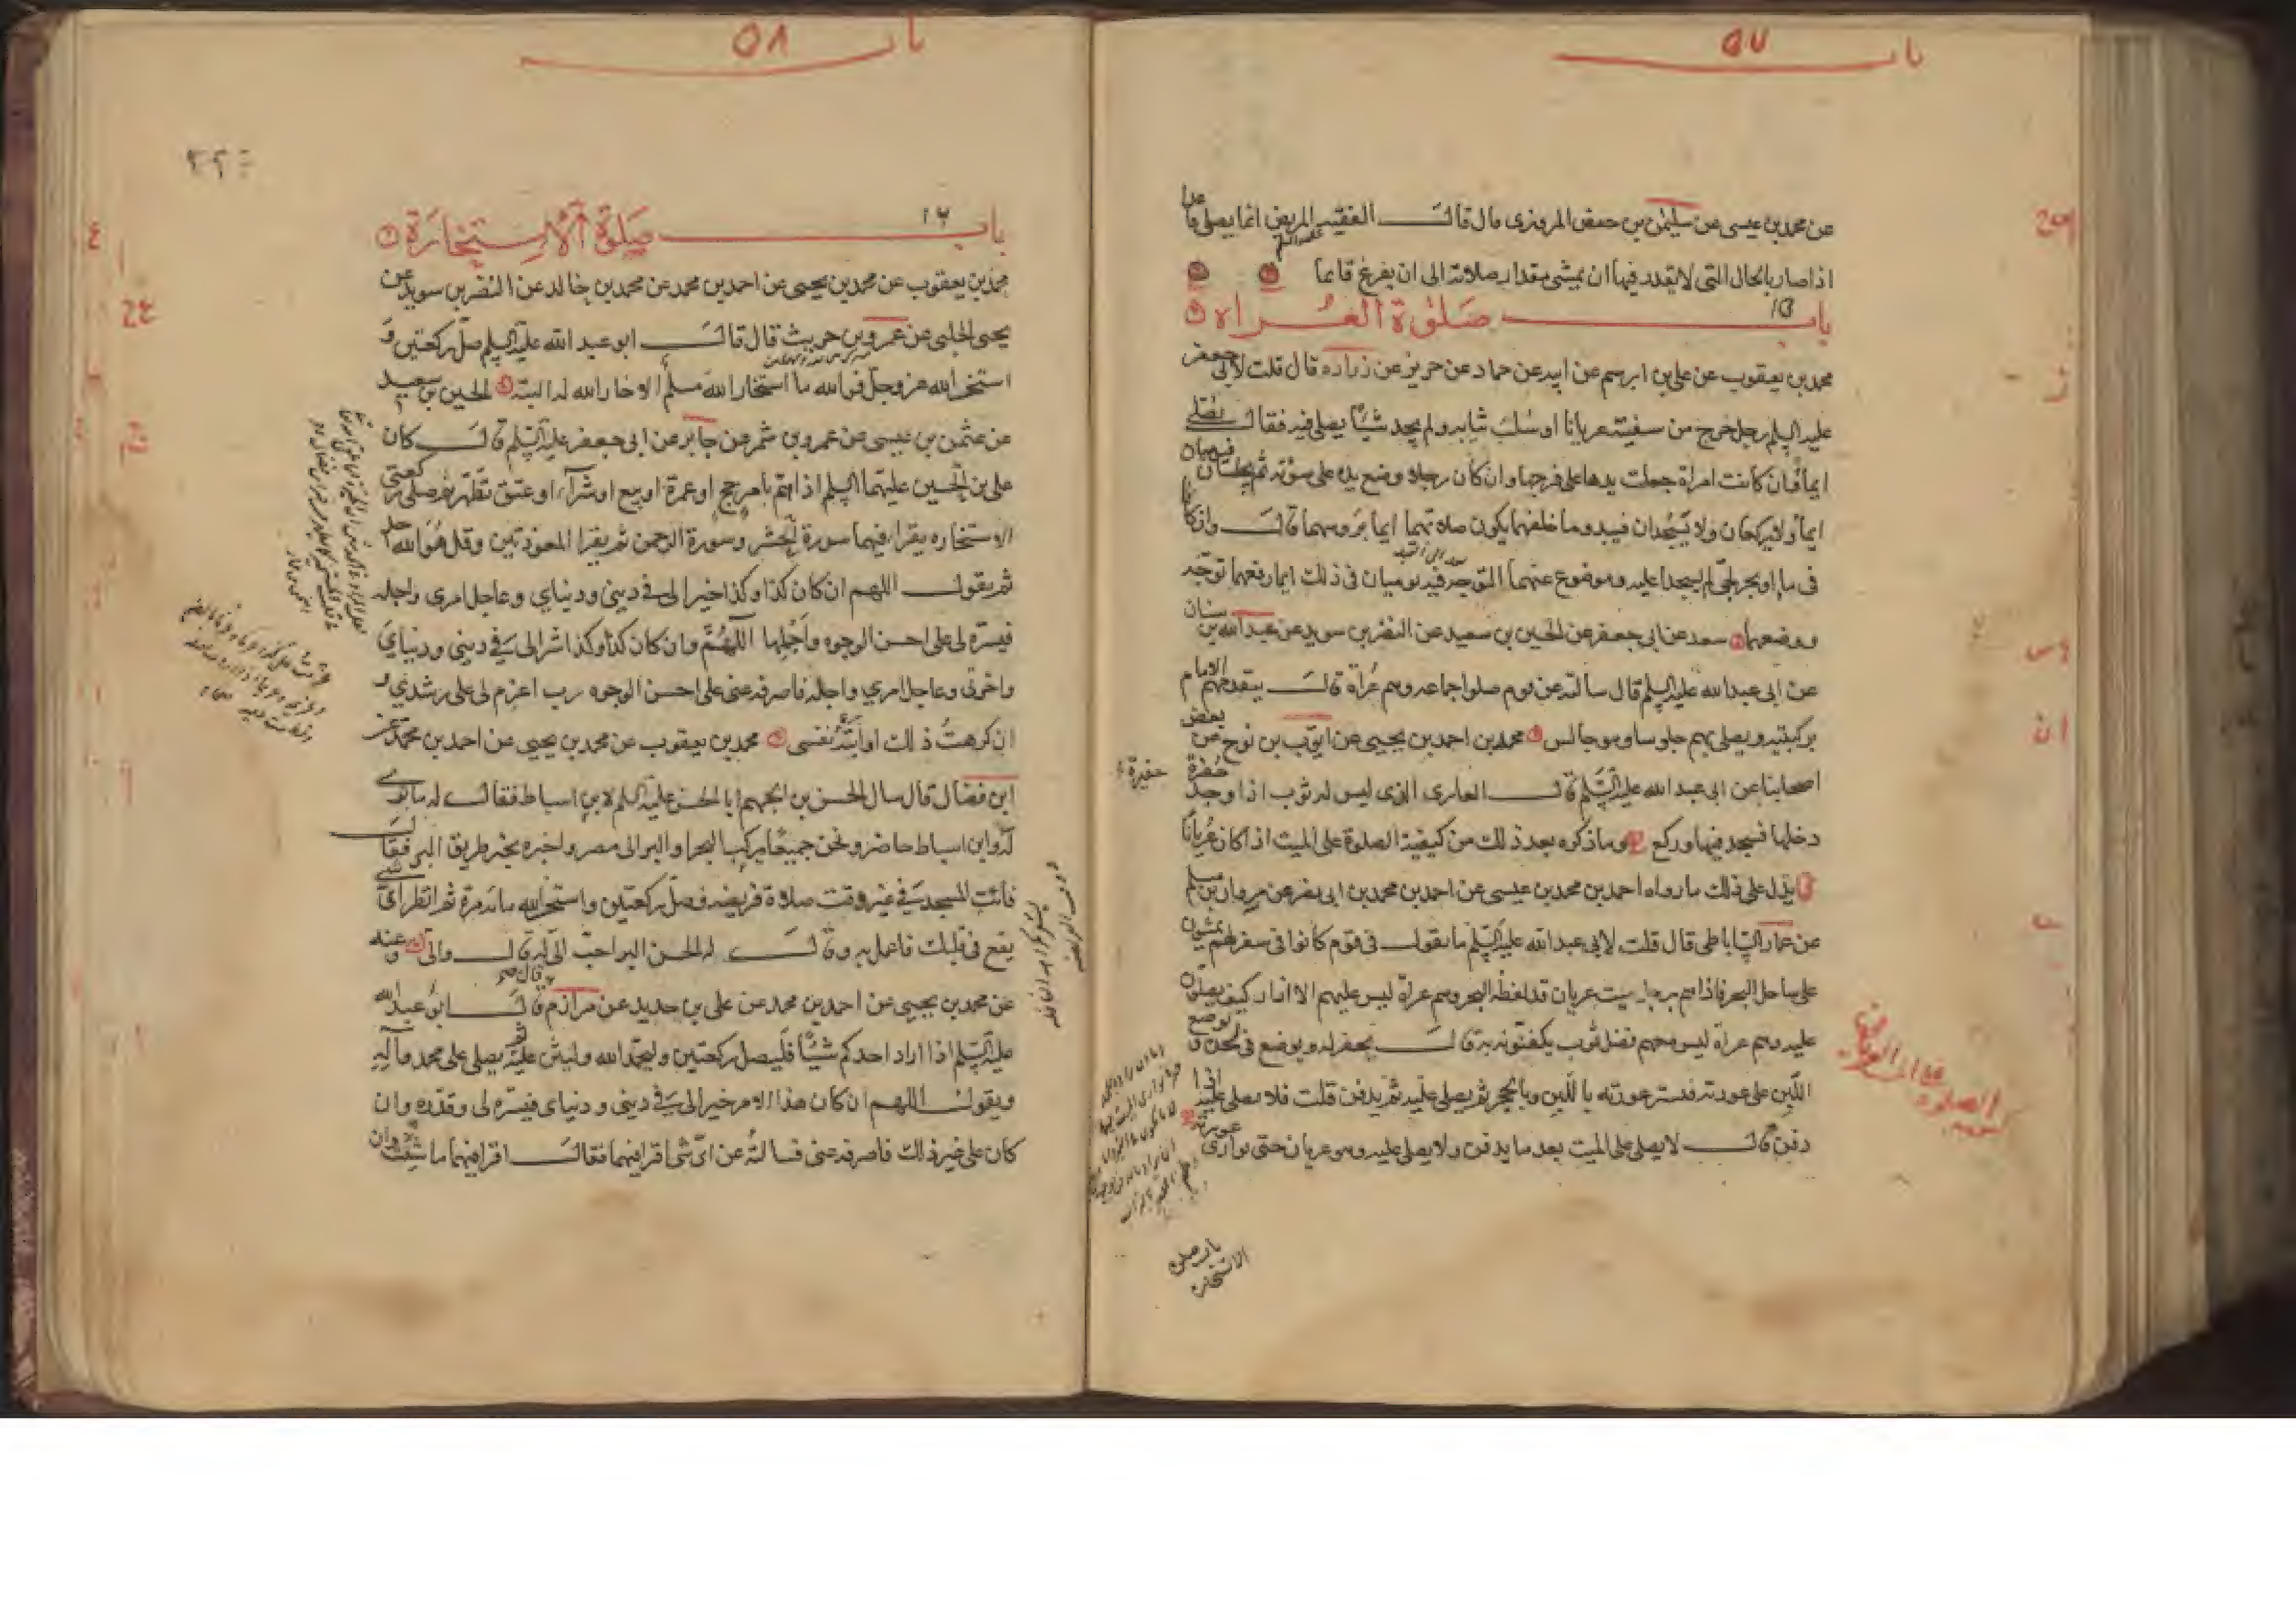 باب ٥٧
عن محمد بن عيسى عن سليمن بن حفص المروزى قال قالــــ الفقيه المريض انما يصلى قاعدا
عليه السلم
اذا صار بالحال التى لا يقدر فيها ان يمشى مقدار صلاته الى ان يفرغ قايما
باب صلوة العراة
محمد بن يعقوب عن على بن ابرهيم عن ابيه عن حماد عن حريز عن زراره قال قلت لابى جعفر
عليه السلم رجل خرج من سفينة عريانا او سلب ثيابه ولم يجد شيئا يصلى فيه فقالــــ يصلى
ايماً فان كانت امراة جعلت يدها على فرجها وان كان رجلا وضع يده على سوئته ثم يجلسان فيوميان
ايماً ولا يركعان ولا يسجدان فيبدو ما خلفهما يكون صلاتهما ايما برؤسهما قالــــ وان كانا
فى ماء او بحر لجى لم يسجدا عليه وموضوع عنهما التوجه فيه يوميان فى ذلك ايما رفعهما توجه
ووضعهما سعد عن ابى جعفر عن الحسين بن سعيد عن النضر بن سويد عن عبد الله بن سنان
عن ابى عبد الله عليه السلم قال سالته عن قوم صلوا جماعه وهم عراة قالــــ يتقدمهم الامام
بركبتيه ويصلى بهم جلوسا وهو جالس محمد بن احمد بن يحيى عن ايوب بن نوح عن بعض
اصحابنا عن ابى عبد الله عليه السلم قالــــ العارى الذى ليس له ثوب اذا وجد حفرة
حفيرة
دخلها فسجد فيها وركع وما ذكره بعد ذلك من كيفية الصلوة على الميت اذا كان عرياناً
يدل على ذلك ما رواه احمد بن محمد بن عيسى عن احمد بن محمد بن ابى نصر عن مروان بن مسلم
عن عمار الساباطى قال قلت لابى عبد الله عليه السلم ما تقولــــ فى قوم كانوا فى سفر لهم يمشون
على ساحل البحر فاذا هم برجل ميت عريان قد لفظه البحر وهم عراة ليس عليهم الا ازار كيف يصلون
عليه وهم عراة ليس معهم فضل ثوب يكفنونه به قالــــ يحفر له ويوضع فى لحده ويوضع
اللبن على عورته فستر عورته باللبن وبالحجر ثم يصلى عليه ثم يدفن قلت فلا يصلى عليه اذا
دفن قالــــ لا يصلى على الميت بعد ما يدفن ولا يصلى عليه وهو عريان حتى توارى عورته
باب صلوة
الاستخارة
باب ٥٨
باب ١٢ صلوة الاستخارة
محمد بن يعقوب عن محمد بن يحيى عن احمد بن محمد عن محمد بن خالد عن النضر بن سويد عن
يحيى الحلبى عن عمرو بن حريث قال قالــــ ابو عبد الله عليه السلم صل ركعتين و
استخر الله عز وجل فو الله ما استخار الله مسلم الا خار الله له البتة الحسين بن سعيد
عن عثمن بن عيسى عن عمرو بن شمر عن جابر عن ابى جعفر عليه السلم قالــــ كان
على بن الحسين عليهما السلم اذا هم بامر حج او عمرة او بيع او شرآء او عتق تطهر ثم صلى ركعتى
الاستخاره يقرا فيهما سورة الحشر وسورة الرحمن ثم يقرا المعوذتين وقل هو الله احد
ثم يقولــــ اللهم ان كان كذا وكذا خيرا لى فى دينى ودنياي وعاجل امرى واجله
فيسره لى على احسن الوجوه واجملها اللهم وان كان كذا وكذا شرا لى فى دينى ودنياي
واخرتى وعاجل امري واجله فاصرفه عنى على احسن الوجوه رب اعزم لى على رشدي و
ان كرهت ذلك او ابته نفسى محمد بن يعقوب عن محمد بن يحيى عن احمد بن محمد عن
ابن فضال قال سال الحسن بن الجهم ابا الحسن عليه السلم لابن اسباط فقالــــ له ما ترى
له وابن اسباط حاضر ونحن جميعا يركب البحر او البر الى مصر واخبره بخبر طريق البر فقالــــ
فائت المسجد فى غير وقت صلاة فريضه فصل ركعتين واستخر الله مائة مرة ثم انظر اى شى
يقع فى قلبك فاعمل به وقالــــ له الحسن البر احب الى له قالــــ والى وعنه
عن محمد بن يحيى عن احمد بن محمد عن على بن حديد عن مرازم قالــــ قال لى ابو عبد الله
عليه السلم اذا اراد احدكم شيئا فليصل ركعتين وليحمد الله وليثن عليه ثم يصلى على محمد وآله
ويقولــــ اللهم ان كان هذا الامر خيرا لى فى دينى ودنياى فيسره لى وقدره وان
كان على غير ذلك فاصرفه عنى فسالته عن اى شى اقرا فيهما فقالــــ اقرا فيهما ما شئت وان